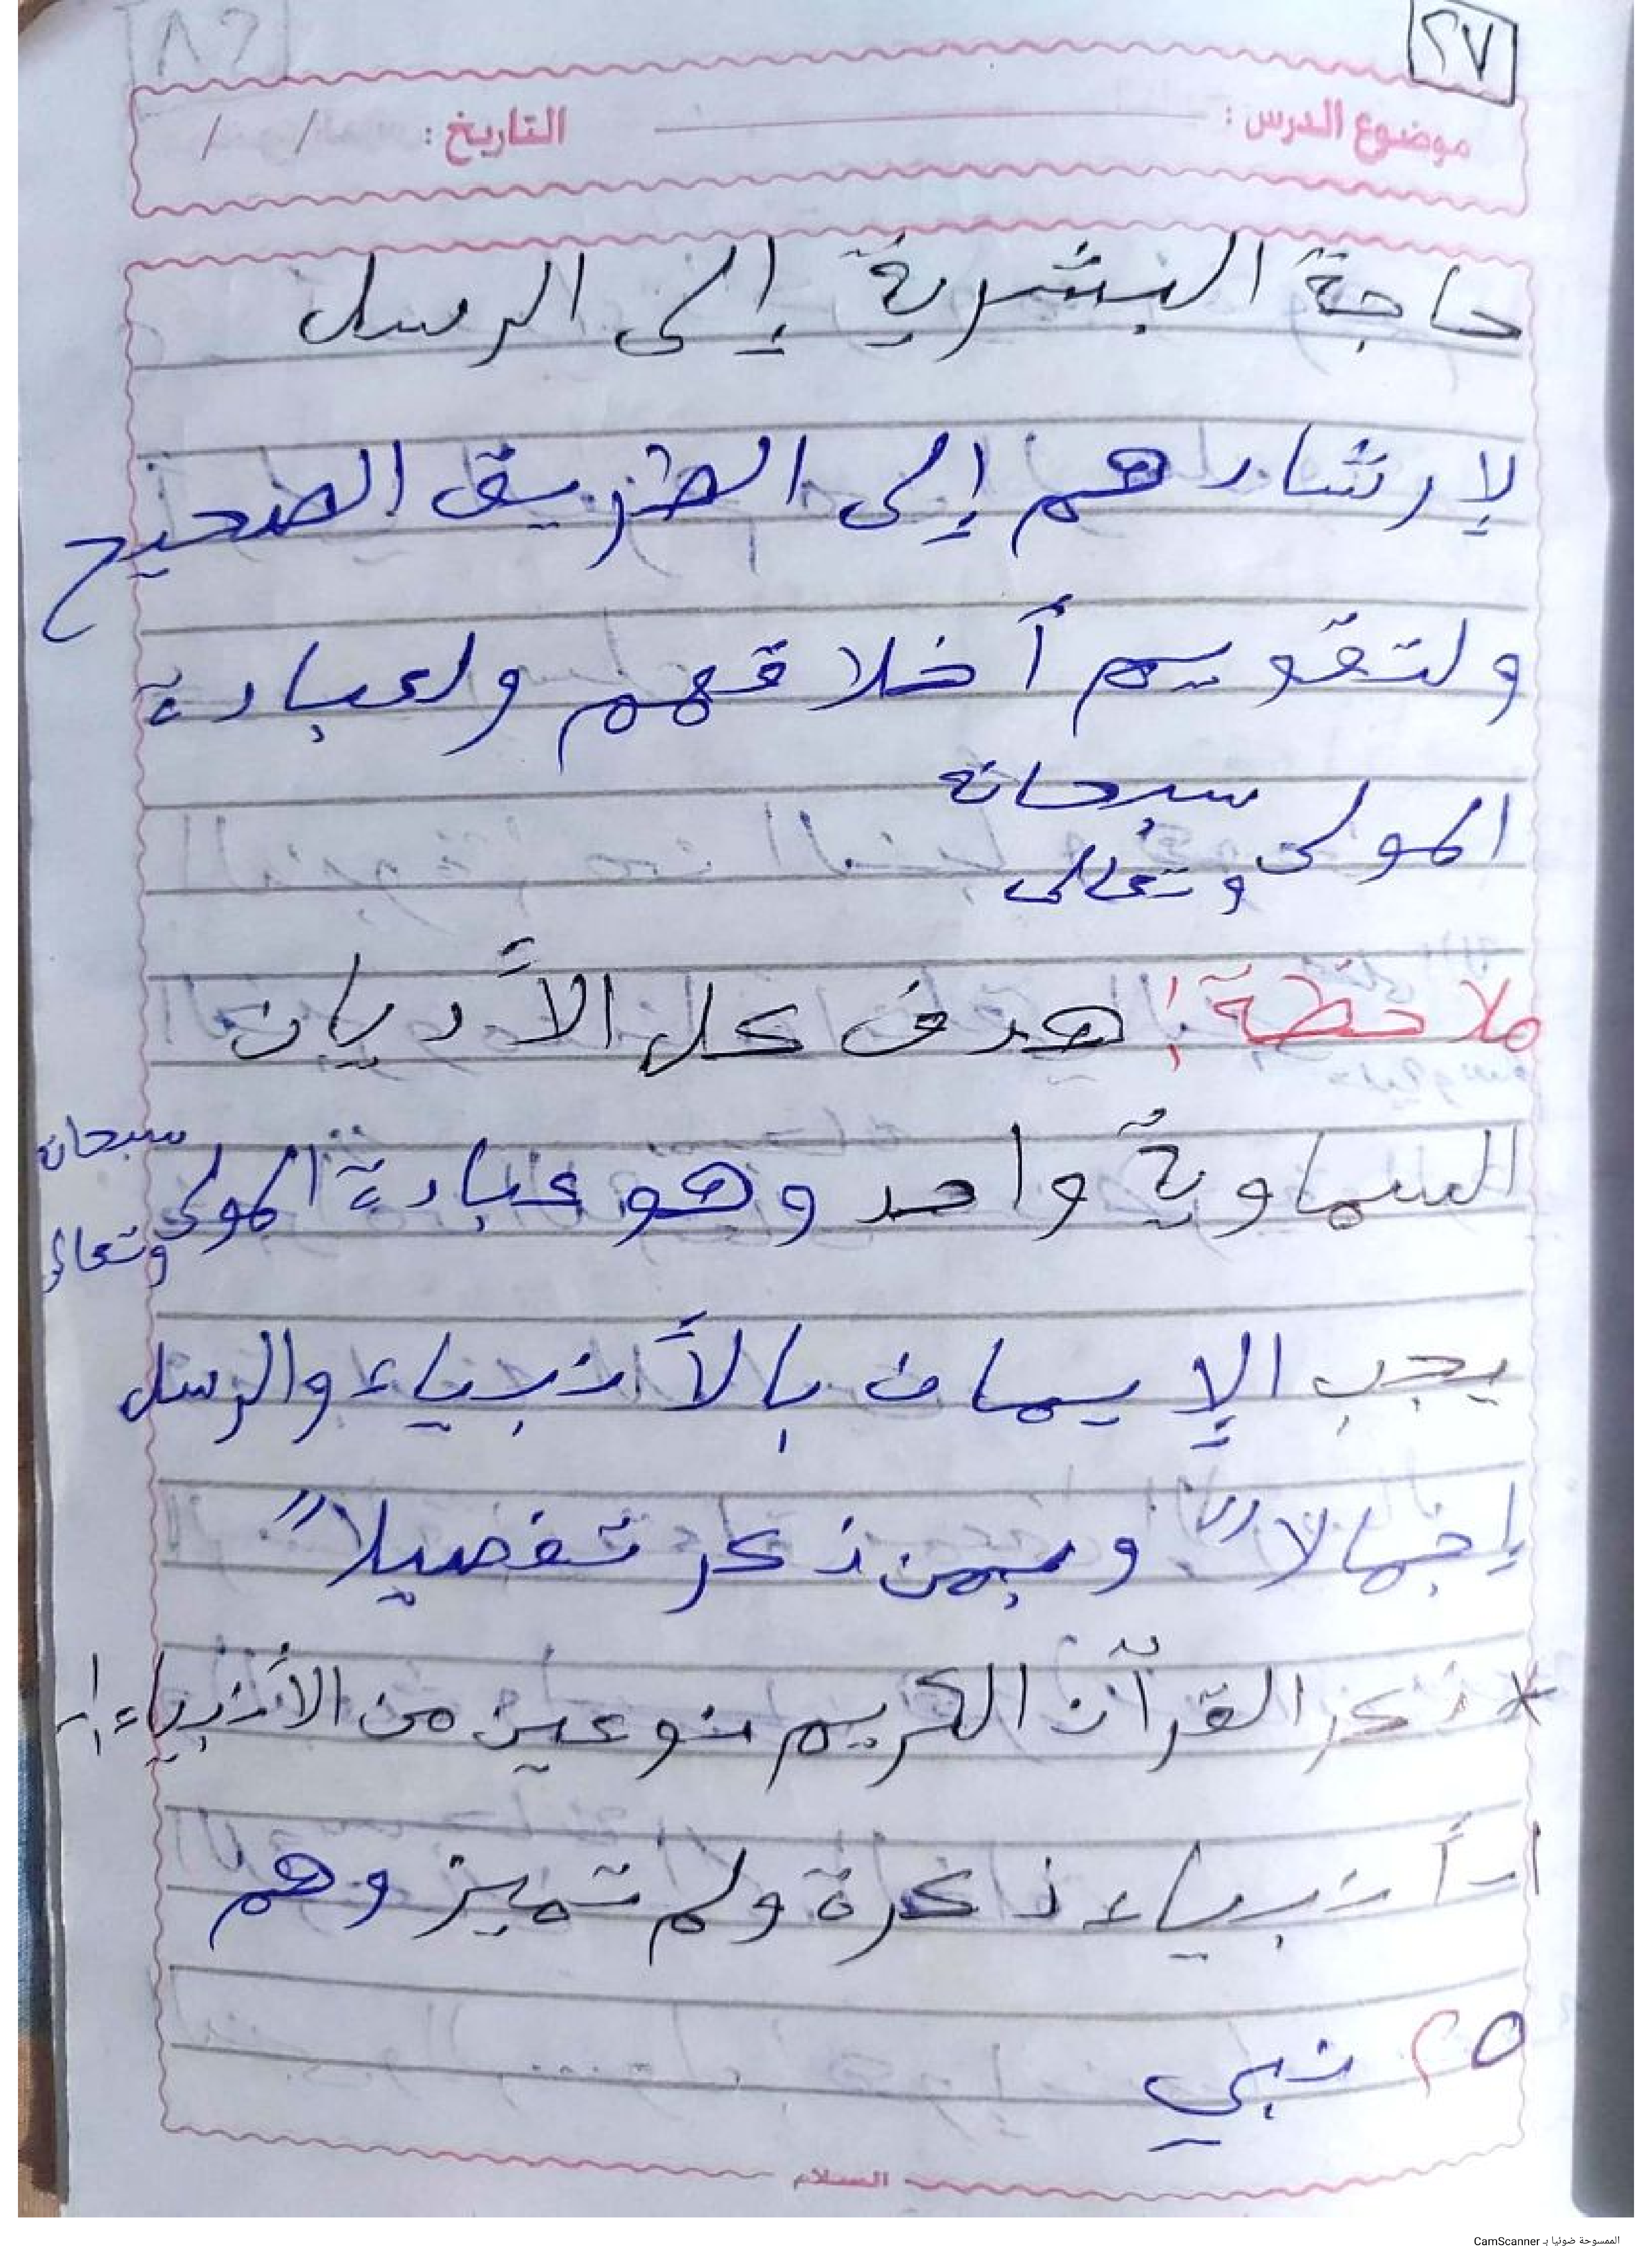 ٢٧
موضوع الدرس : التاريخ : / /
حاجة البشرية إلى الرسل
لإرشادهم إلى الطريق الصحيح
ولتقويم أخلاقهم ولعبادة
المولى سبحانه وتعالى
ملاحظة : هدف كل الأديان
السماوية واحد وهو عبادة المولى سبحانه وتعالى
يجب الإيمان بالأنبياء والرسل
إجمالاً وبمن ذكر تفصيلاً
* ذكر القرآن الكريم نوعين من الأنبياء :-
١- أنبياء ذكرة ولم تميز وهم
٢٥ نبي
السلام
الممسوحة ضوئيا بـ CamScanner